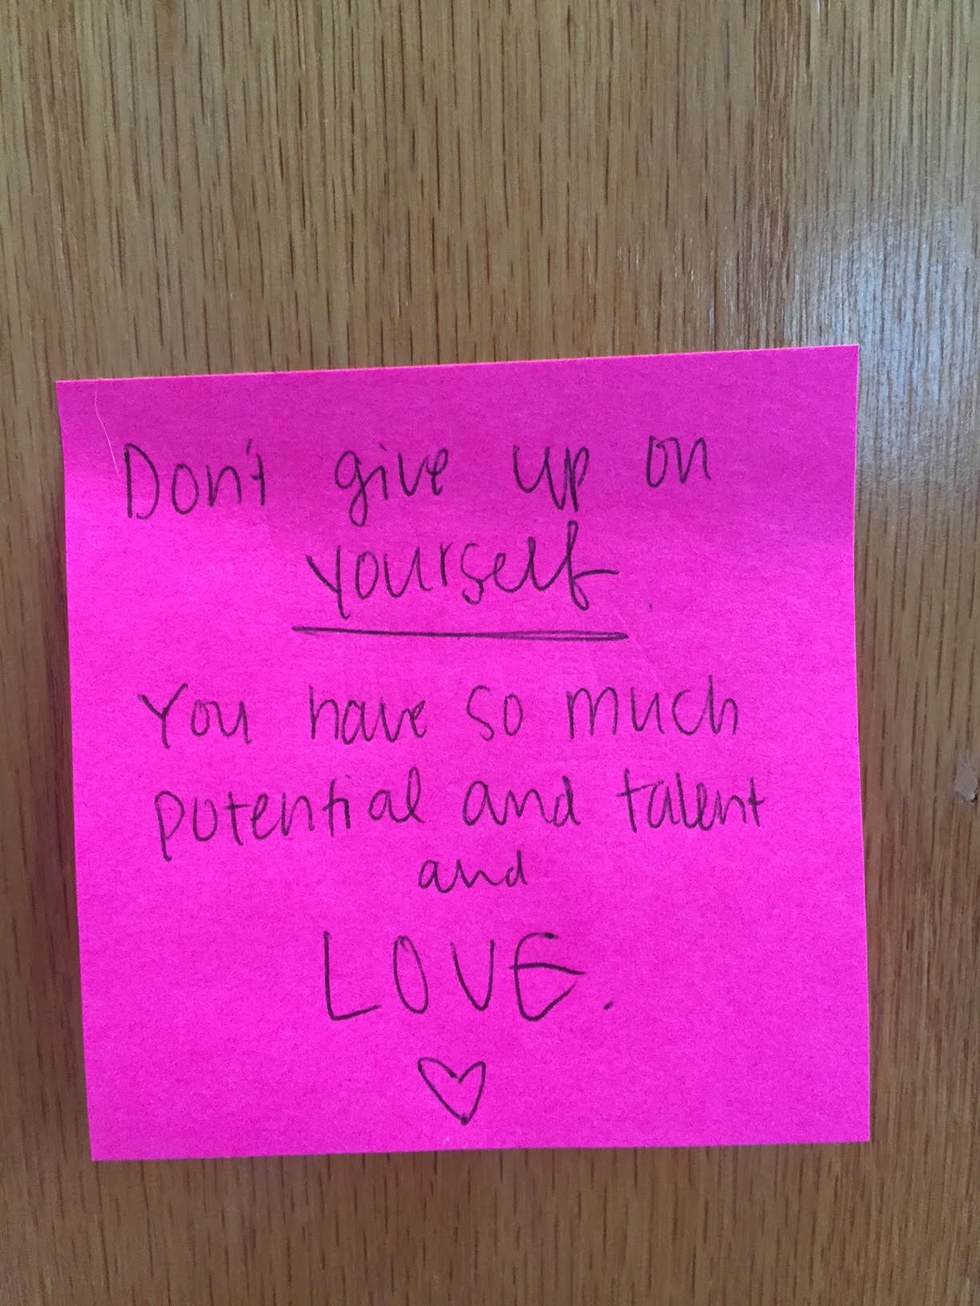 Don't give up on
yourself
You have so much
potential and talent
and
LOVE.